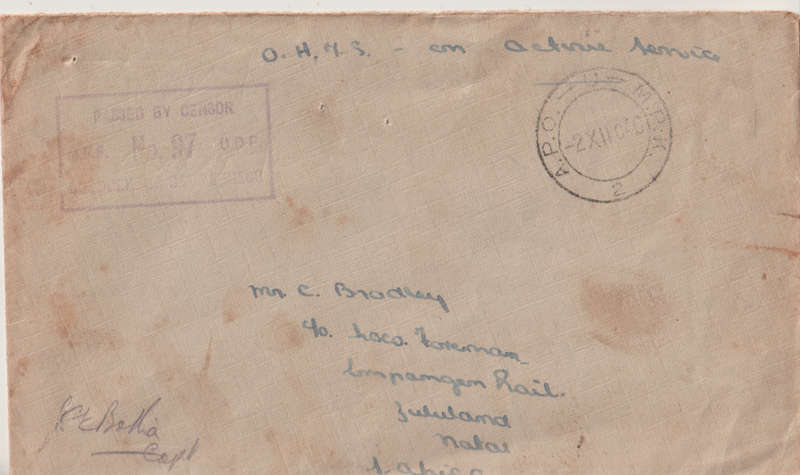 O.H.M.S. - on Active Service
PASSED BY CENSOR
No. 97 U.D.F.
A.P.O. — U — M.P.K.
2 XII
2
Mr. C. Bradley
c/o. Loco. Foreman
Empangeni Rail.
Zululand
Natal
S. Africa
Capt